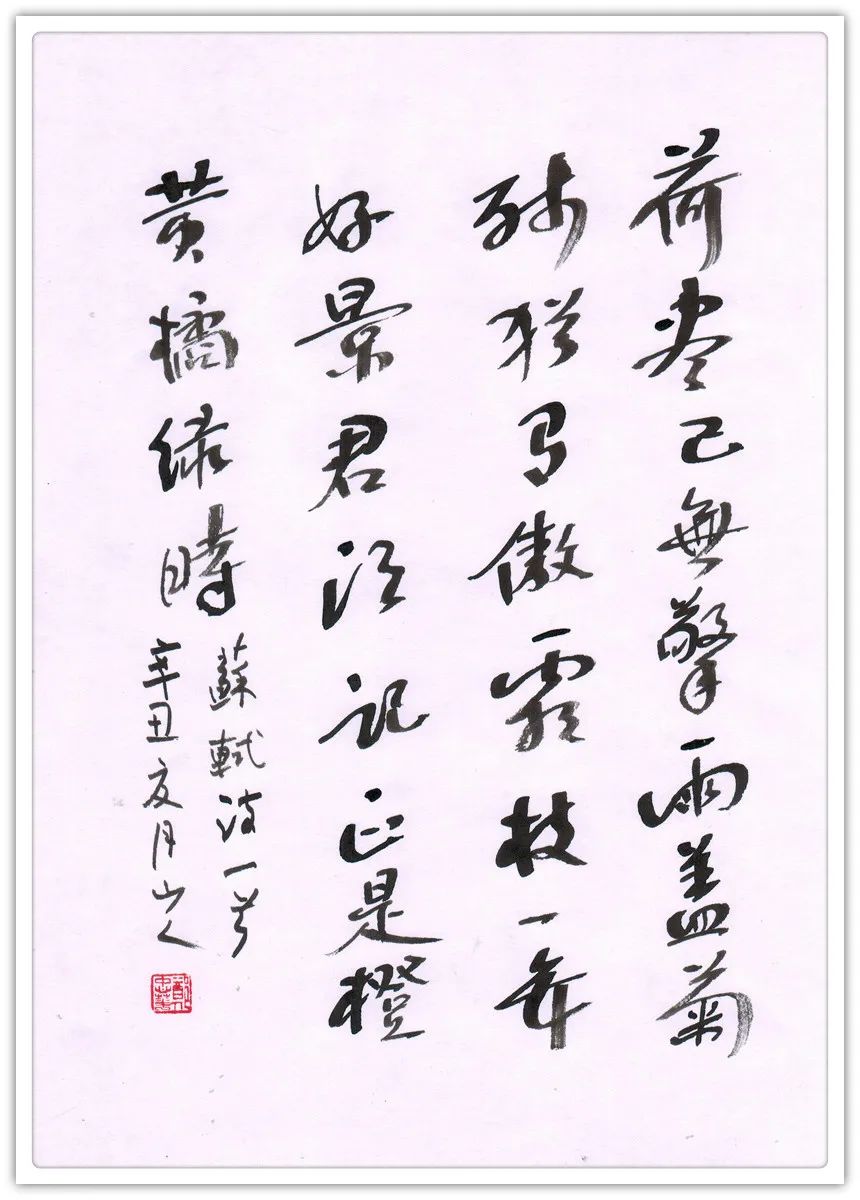 荷盡已無擎雨盖菊
残猶有傲霜枝一年
好景君须記正是橙
黄橘绿時
蘇軾诗一首
辛丑夏月山人